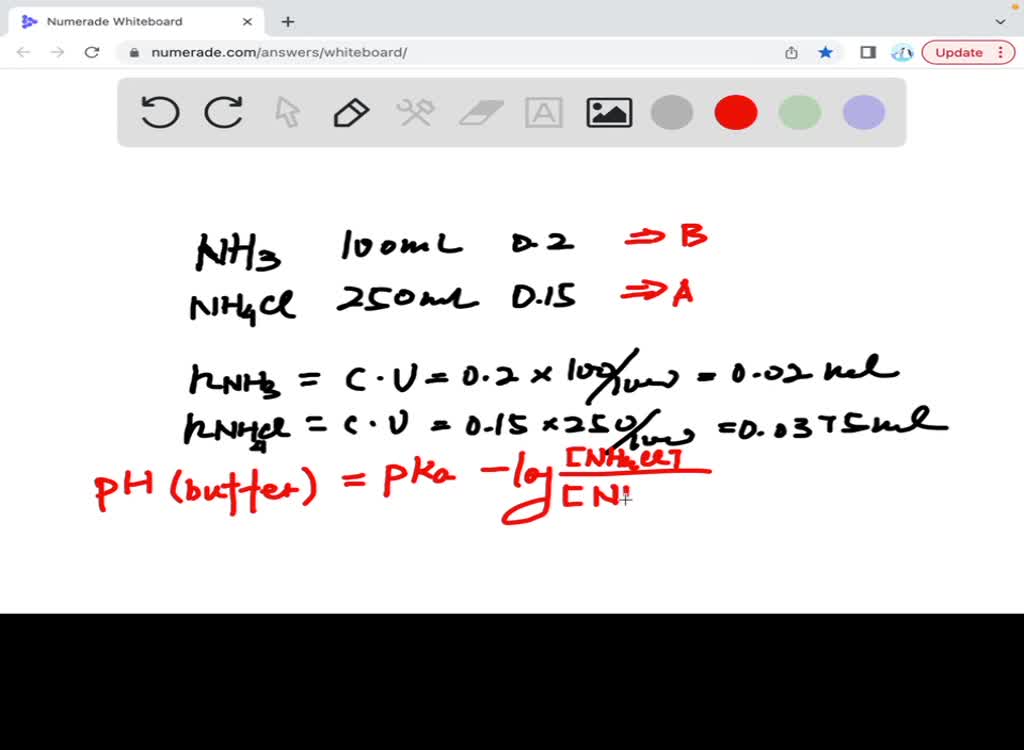 Numerade Whiteboard
numerade.com/answers/whiteboard/
Update
A
NH3 100mL 0.2 ⇒ B
NH4Cl 250mL 0.15 ⇒ A
nNH3 = C·V = 0.2 × 100/1000 = 0.02 mol
nNH4Cl = C·V = 0.15 × 250/1000 = 0.0375 mol
pH (buffer) = pKa - log [NH4Cl]
[N